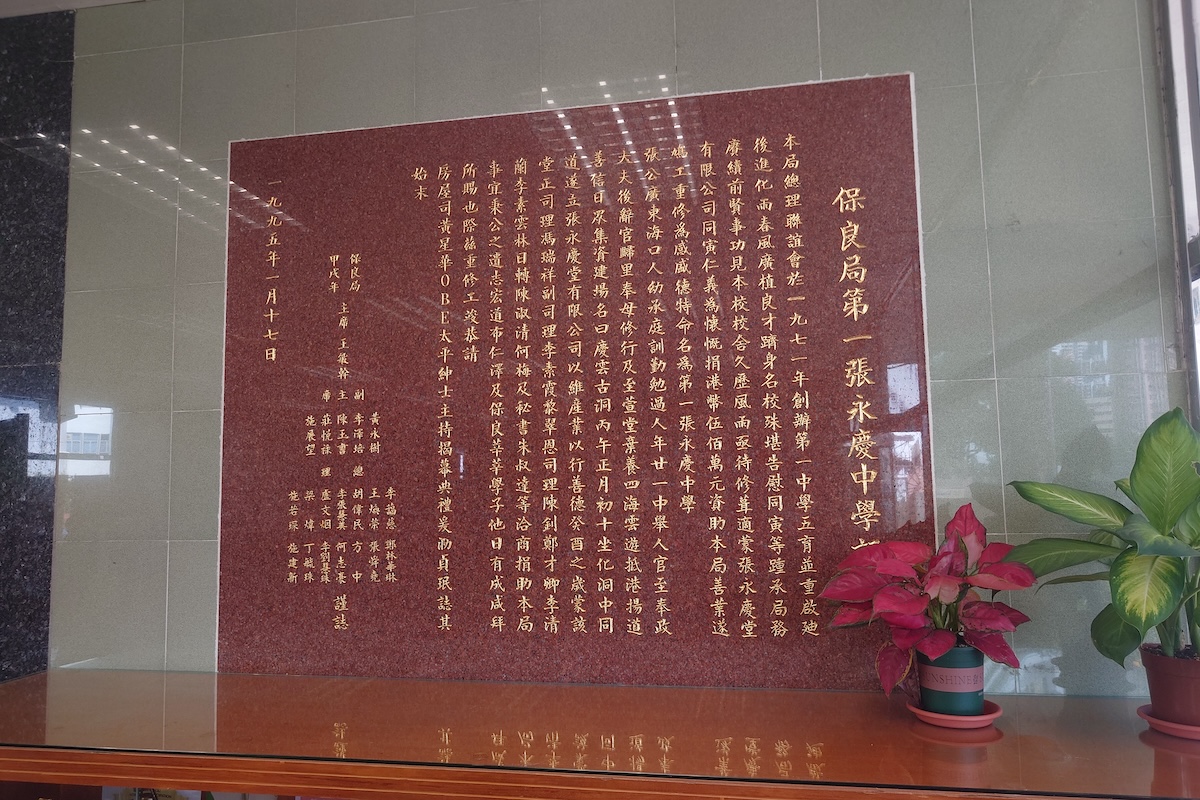 保良局第一張永慶中學
本局總理聯誼會於一九七一年創辦第一中學五育並重啟廸
後進化雨春風廣植良才躋身名校殊堪告慰同寅等踵承局務
賡續前賢事功見本校校舍久歷風雨亟待修葺適蒙張永慶堂
有限公司同寅仁義為懷慨捐港幣伍佰萬元資助本局善業遂
鳩工重修為感盛德特命名為第一張永慶中學
張公廣東海口人幼承庭訓勤勉過人年廿一中舉人官至奉政
大夫後辭官歸里奉母修行及至萱堂棄養四海雲遊抵港揚道
善信日眾集資建場名曰慶雲古洞丙午正月初十坐化洞中同
道遂立張永慶堂有限公司以維產業以行善德癸酉之歲蒙該
堂正司理馮瑞祥副司理李素霞黎翠恩司理陳釗鄭才卿李清
蘭李素雲林日轉陳淑清何梅及秘書朱叔達等洽商捐助本局
事宜秉公之遺志宏道布仁澤及保良莘莘學子他日有成咸拜
所賜也際茲重修工竣恭請
房屋司黃星華OBE太平紳士主持揭幕典禮爰泐貞珉誌其
始末
保良局
甲戌年
主席王敏幹
副主席
黃永樹
李澤培
陳玉書
莊悅祿
施展望
總理
李藹慈 鄭林華琳
王煥榮 張齊堯
胡偉民 方中
李張慧英 何志豪
盧文烟 李劉慧珠
梁煒 丁毓珠
施若琛 施建新
謹誌
一九九五年一月十七日
SUNSHINE